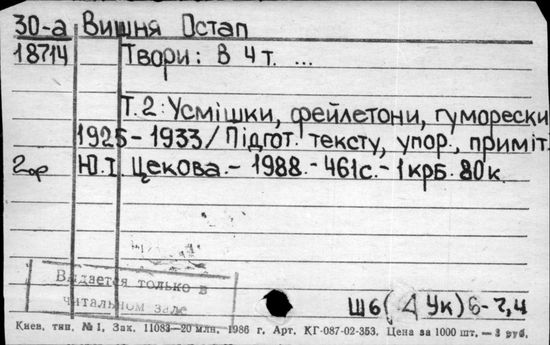 30-а Вишня Остап
18714 Твори: В 4 т. ...
Т. 2: Усмішки, фейлетони, гуморески
1925-1933/Підгот. тексту, упор., приміт.
2ор Ю.І. Цекова.- 1988.- 461с.- 1крб. 80к.
Выдается только в
читальном зале
Ш6(4Ук)6-7,4
Киев. тип. №1, Зак. 11083—20 млн. 1986 г. Арт. КГ-087-02-353. Цена за 1000 шт. — 3 руб.